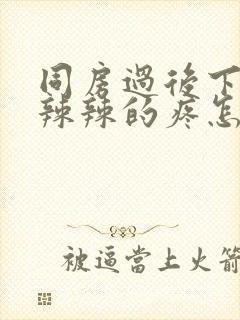 同房過後下
辣辣的疼怎
被逼當上火箭